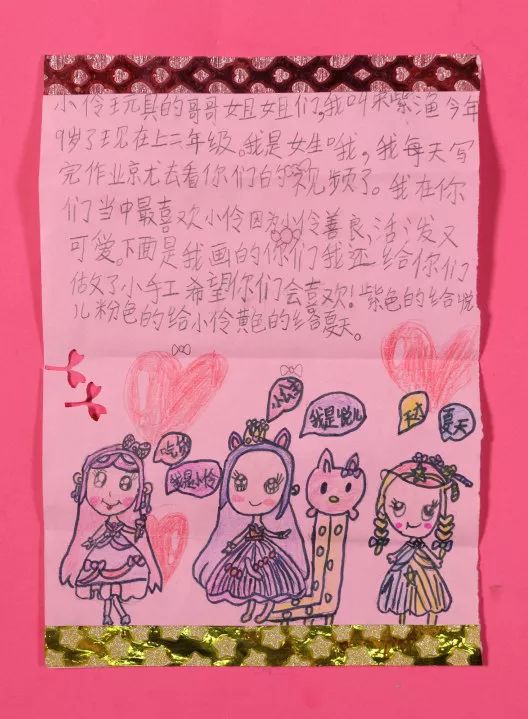 小伶玩具的哥哥姐姐们,我叫朱紫渔今年
9岁了现在上二年级。我是女生哦,我每天写
完作业就去看你们的视频了。我在你
们当中最喜欢小伶因为小伶善良,活泼又
可爱。下面是我画的你们我还给你们
做了小手工希望你们会喜欢!紫色的给悦
儿粉色的给小伶黄色的给夏天。
我是小伶
我是悦儿
夏天